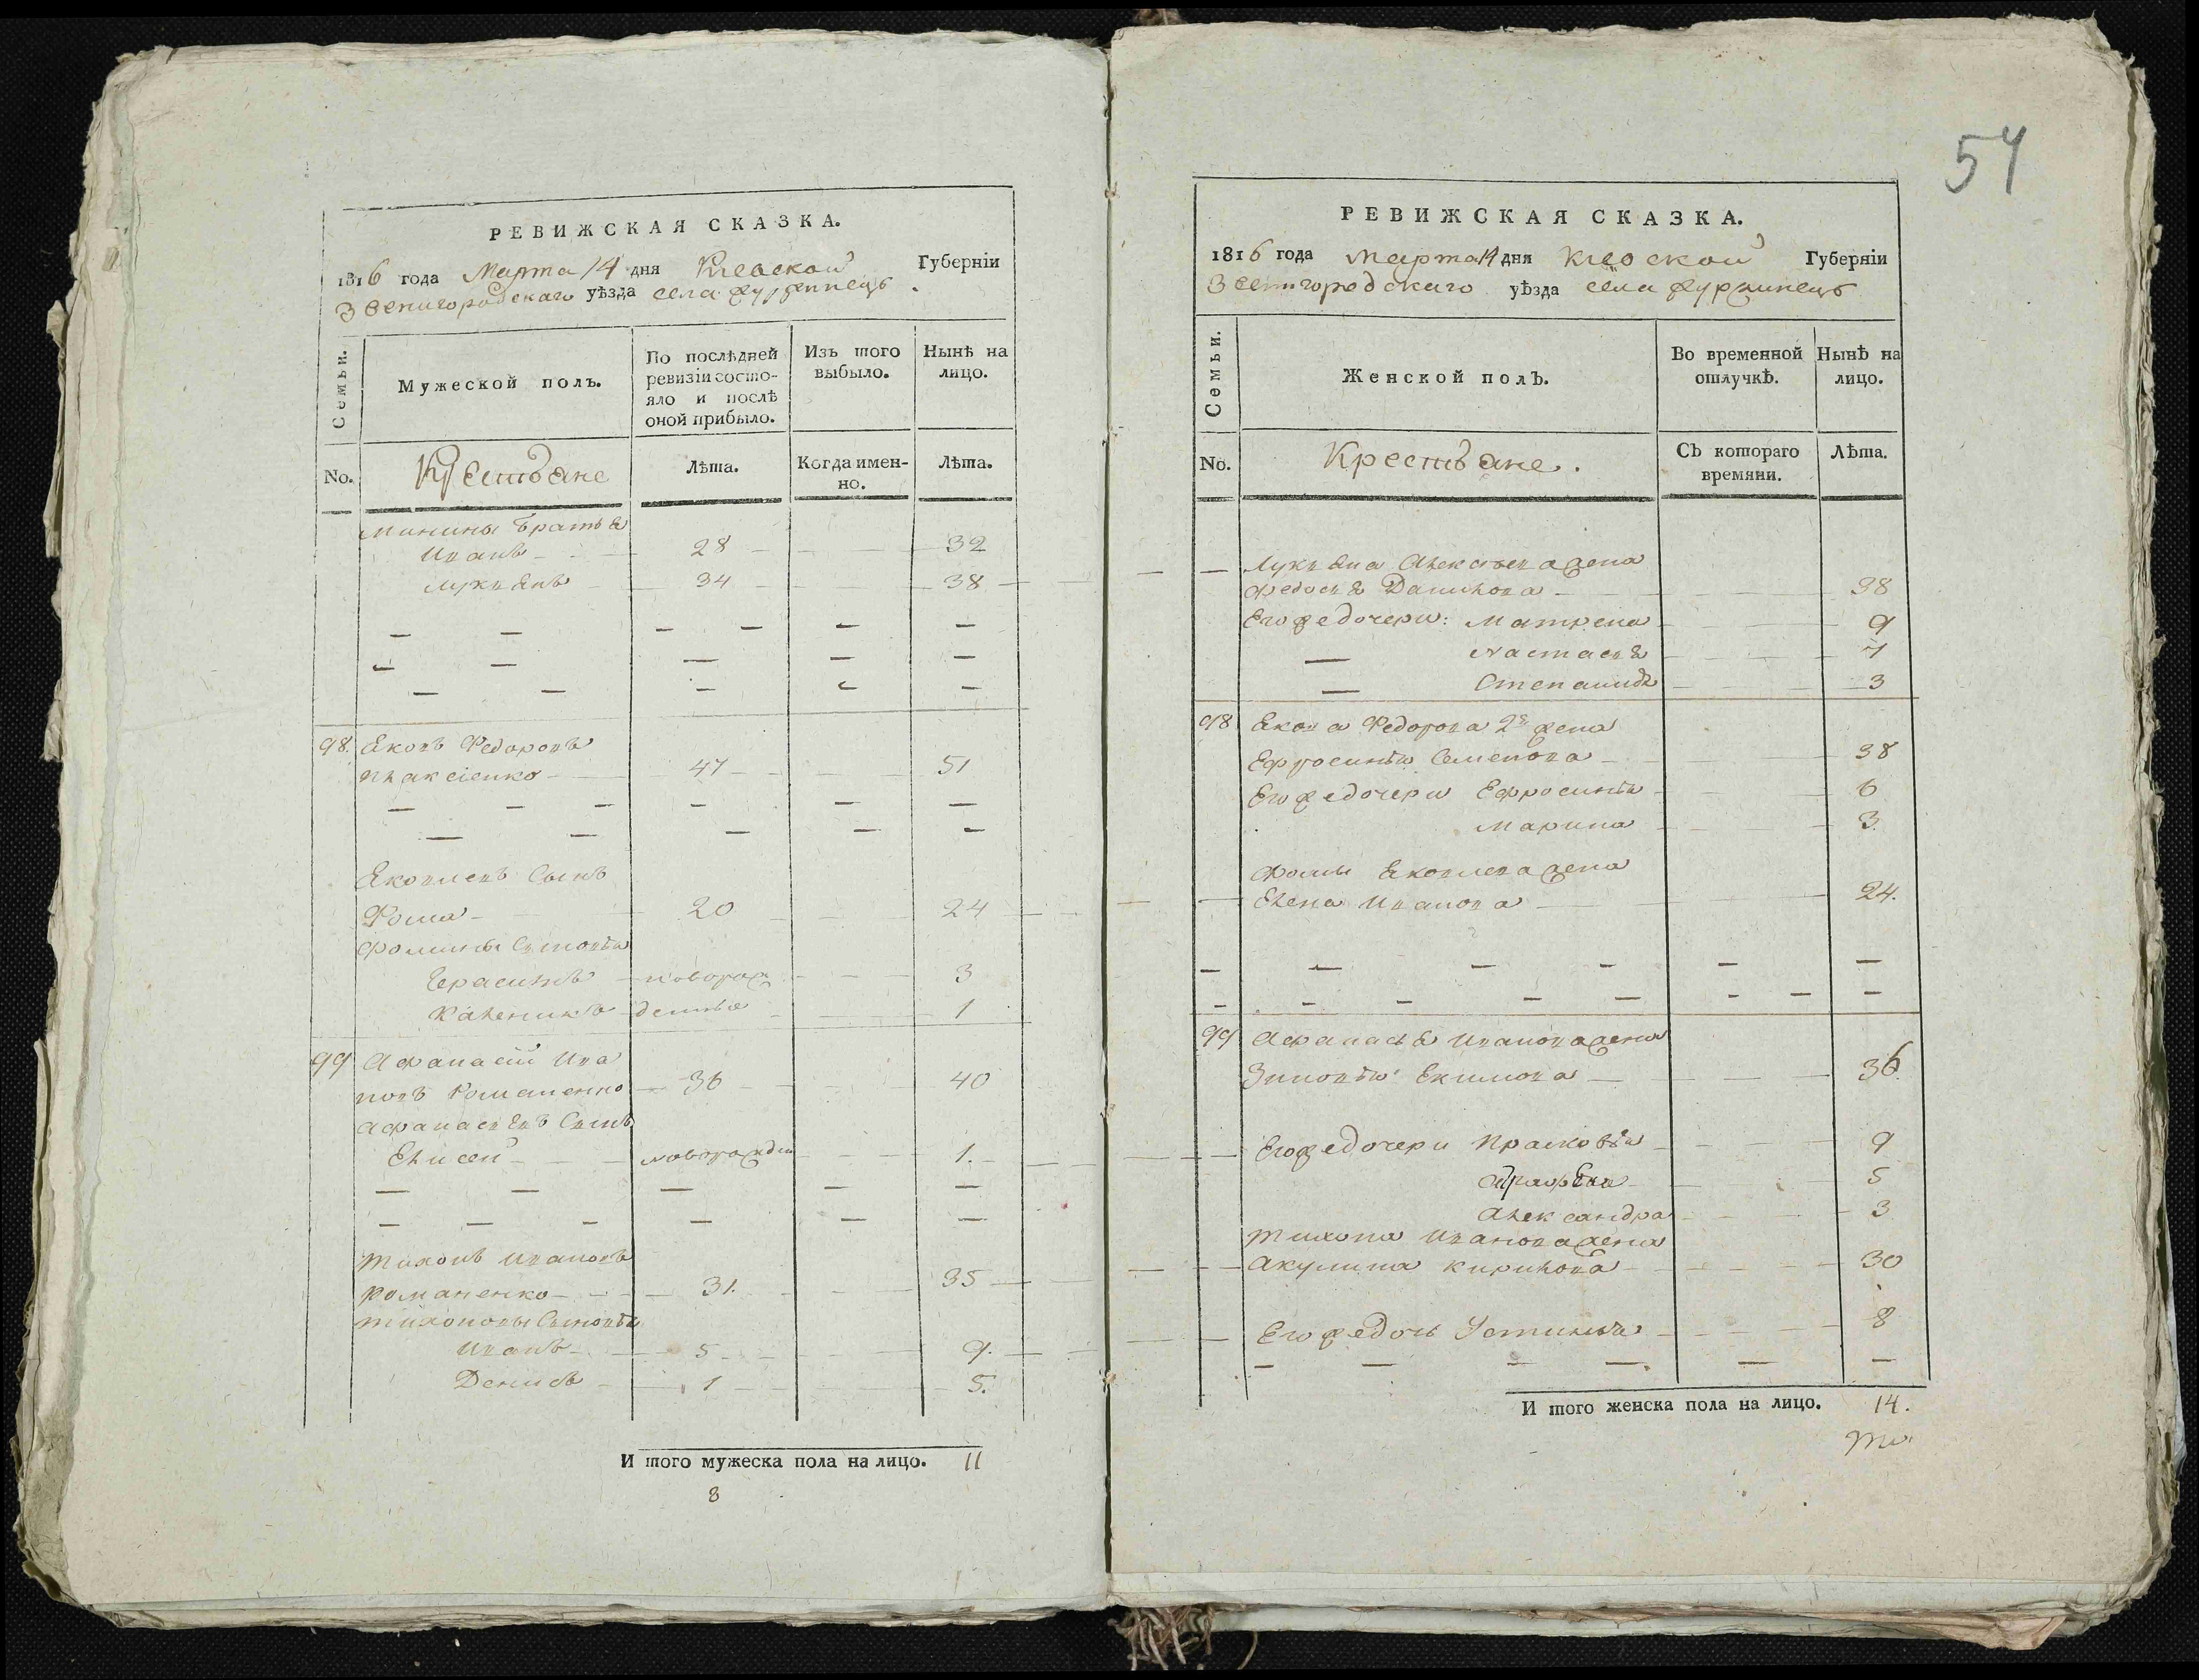 РЕВИЖСКАЯ СКАЗКА.
1816 года Марта 14 дня Киевской Губерніи
Звенигородскаго уѣзда села Фурманецъ
Семьи.
Мужеской полъ.
По послѣдней ревизіи состо-
яло и послѣ
оной прибыло.
Изъ того выбыло.
Нынѣ на лицо.
No.
Крестьяне
Лѣта.
Когда имен-
но.
Лѣта.
Минины братья
Иванъ 28 32
Лукьянъ 34 38
98. Яковъ Федоровъ
Плаксіенко 47 51
Яковлевъ Сынъ
Фома 20 24
Фомины Сыновья
Герасимъ новорож 3
Каленикъ денные 1
99 Афанасій Ива
новъ Романенко 36 40
Афанасьевъ Сынъ
Елисей новорожден 1.
Тихонъ Ивановъ
Романенко 31. 35
Тихоновы Сыновья
Иванъ 5 9.
Денисъ 1 5.
И того мужеска пола на лицо. 11
8
54
РЕВИЖСКАЯ СКАЗКА.
1816 года Марта 14 дня Киевской Губерніи
Звенигородскаго уѣзда села Фурманецъ
Семьи.
Женской полъ.
Во временной отлучкѣ.
Нынѣ на лицо.
No.
Крестьяне.
Съ котораго времяни.
Лѣта.
Лукьяна Алексѣева жена
Федосья Данилова 38
Его же дочери: Матрена 9
Настасья 7
Степанида 3
98 Якова Федорова 2я жена
Ефросинья Семенова 38
Его же дочери Ефросинья 6
Марина 3.
Фомы Яковлева жена
Елена Иванова 24.
99 Афанасья Иванова жена
Зиновья Екимова 36.
Его же дочери Прасковья 9
5
Александра 3
Тихона Иванова жена
Акулина Кирилова 30
Его же дочь Устинья 8
И того женска пола на лицо. 14.